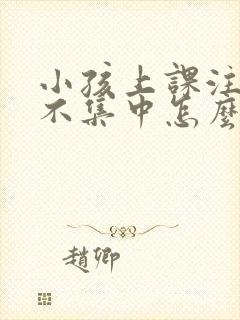 小孩上課注
不集中怎麼
趙卿